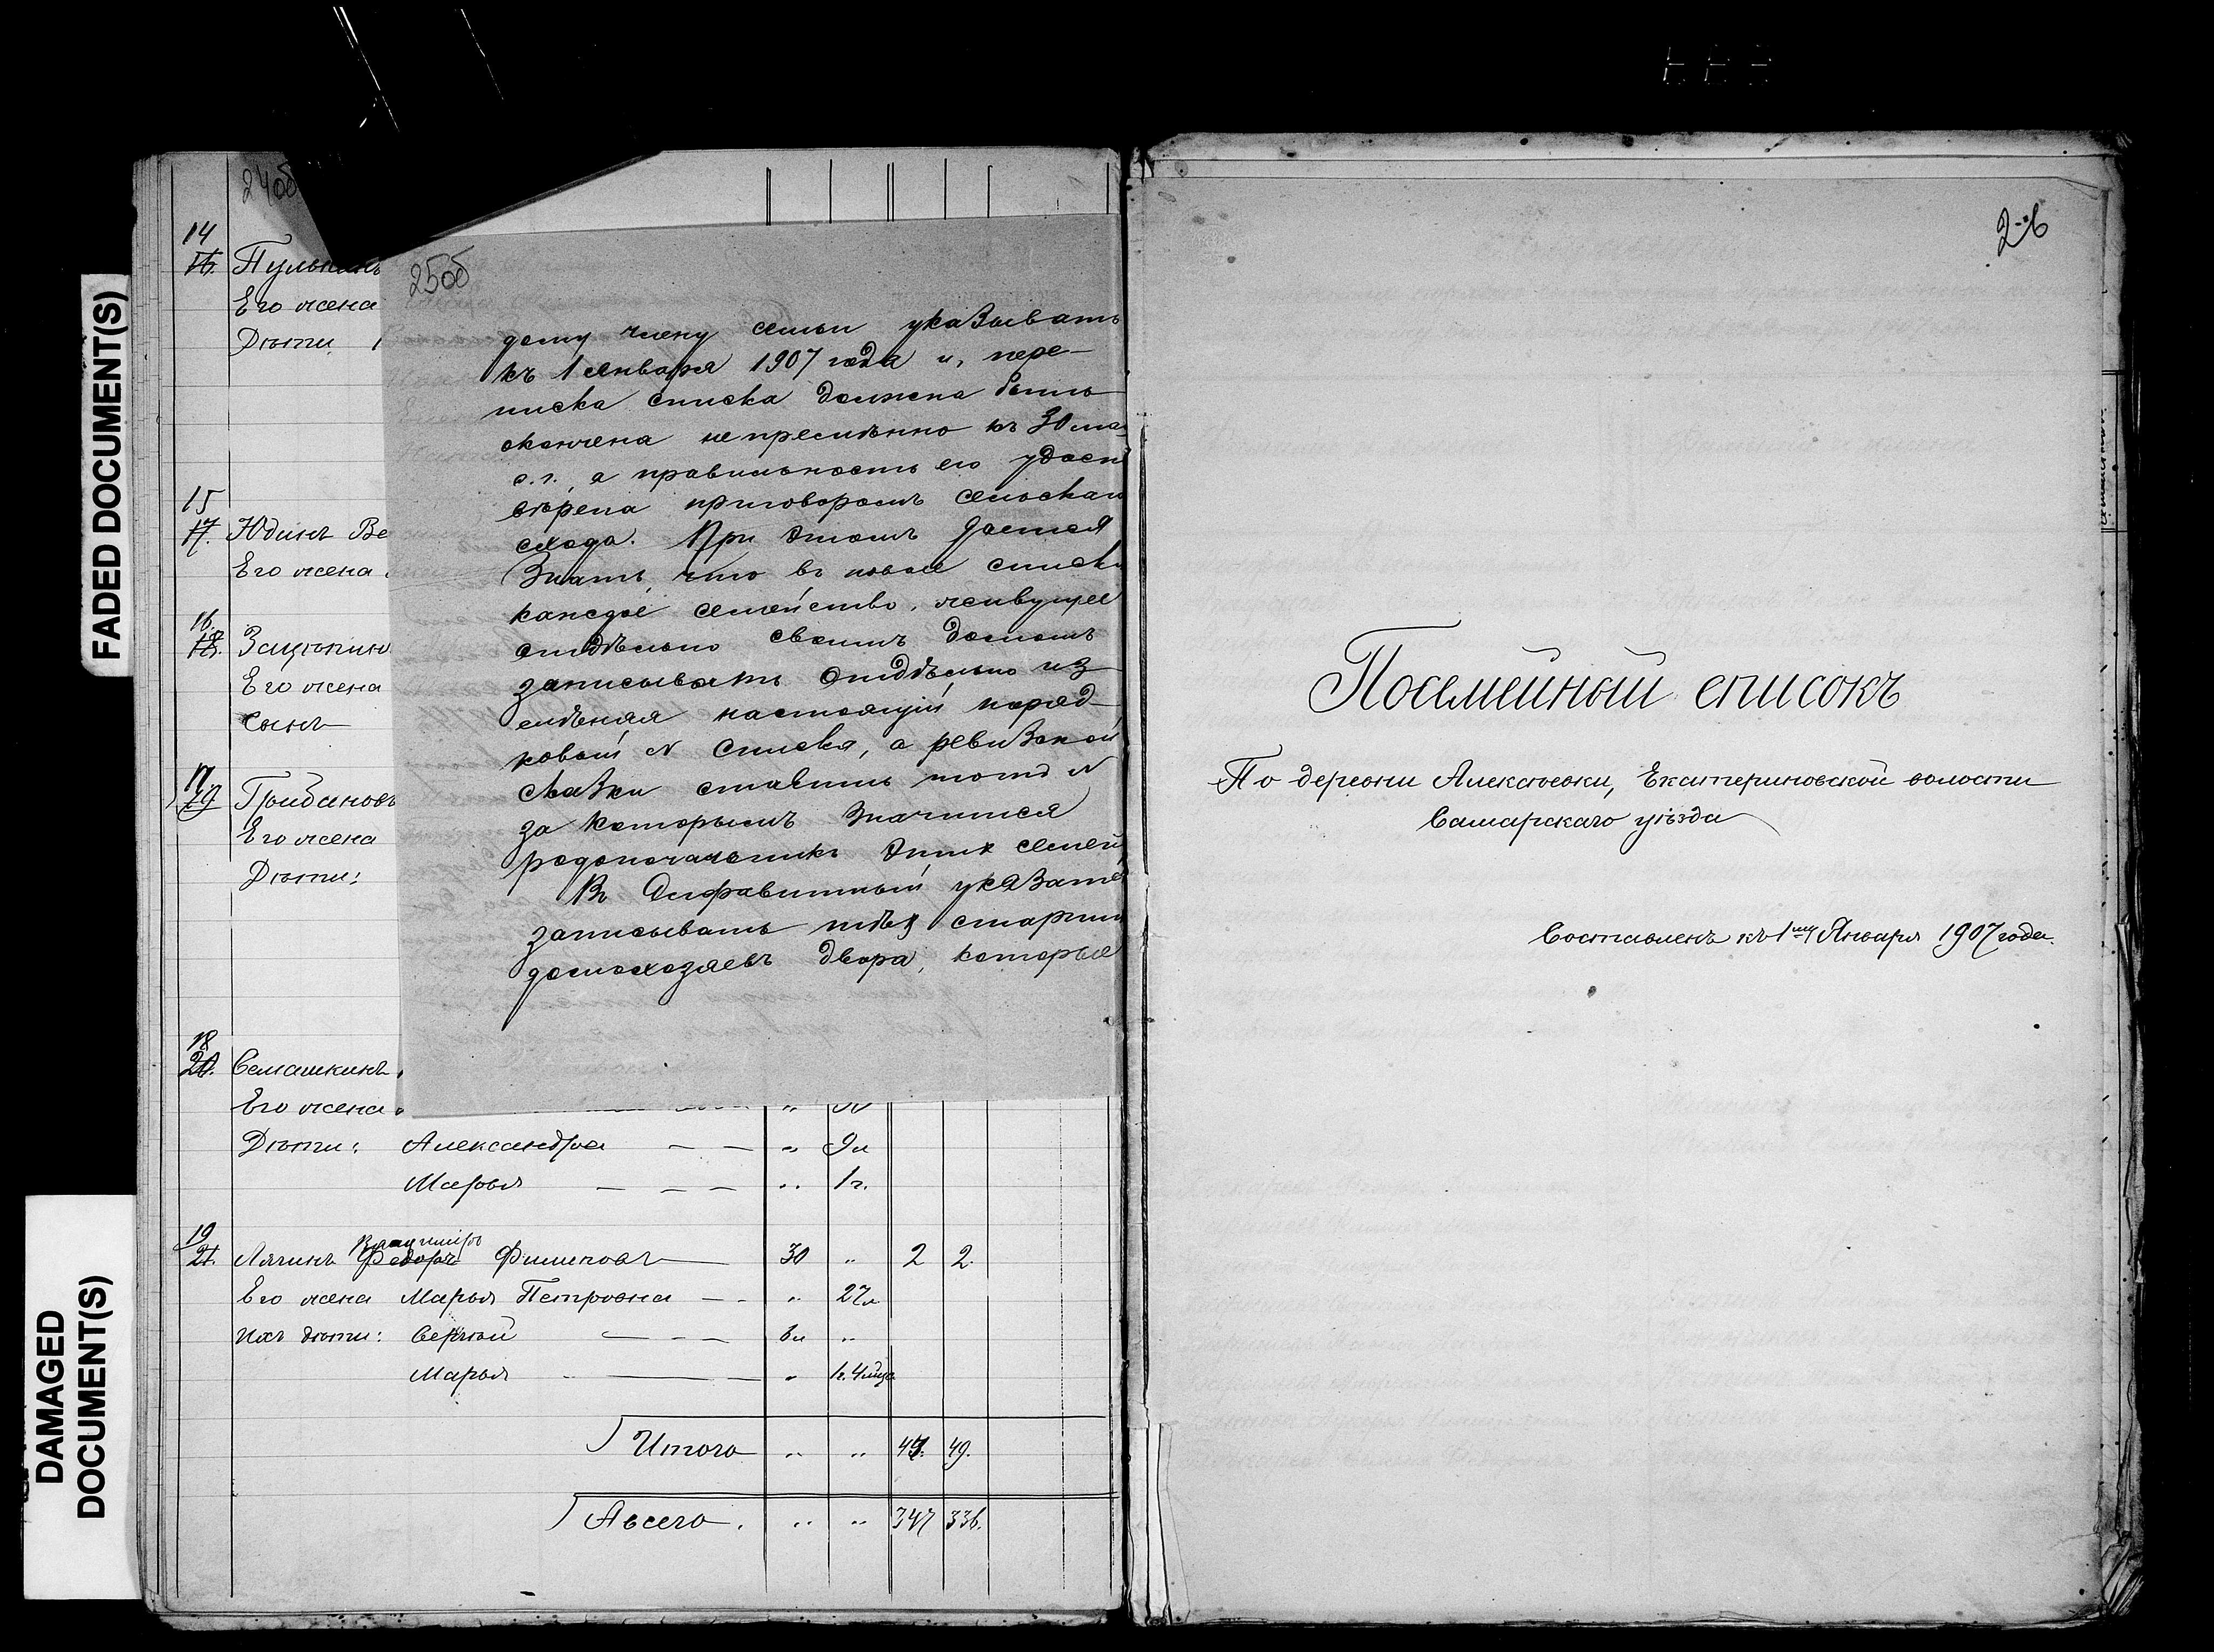 24об
14
16. Пулькинъ
Его жена
Дѣти
15
17. Юдинъ Ве
Его жена
16.
18.
Его жена
сынъ
17
19 Грибановъ
Его жена
Дѣти:
18
20. Семашкинъ
Его жена
Дѣти: Александра — — " 9л
Марья — — — " 1г.
19
Владимiръ
21. Лячинъ Федоръ Филиповъ — 30 " 2 2.
Его жена Марья Петровна — - " 27л
Ихъ дѣти: Сергѣй — - — 6л "
Марья - — — " 1г. 4мца
Итого " " 47. 49.
А всего. " " 347 336.
25об
дому члену семьи указывать
къ 1 января 1907 года и, пере-
писка списка должна быть
окончена непремѣнно къ 30 ма
с. г., а правильность его удосто
вѣрена приговоромъ сельскаго
схода. При этомъ дается
знать, что въ новые списки
каждое семейство, живущее
отдѣльно своимъ домомъ
записывать отдѣльно из-
мѣняя настоящiй поряд-
ковый № списка, а ревизкой
сказки ставить тотъ №
за которымъ значится
родоначальникъ этихъ семей
Въ Алфавитный указатель
записывать тѣхъ старши
домохозяевъ двора, которые
26
Посемейный списокъ
По деревни Алексѣевки, Екатериновской волости
Самарскаго уѣзда
Составленъ къ 1му Января 1907 года.
FADED DOCUMENT(S)
DAMAGED
DOCUMENT(S)